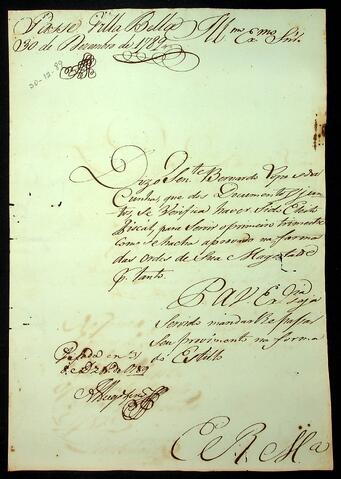 Passe Villa Bella
30 de Dezembro de 1789
Illmo e Exmo Snr.
30-12-89
Diz o Ten.te Bernardo Lopes da
Cunha, que dos Documentos juntos,
se verifica haver sido Eleito
Fiscal, para servir o primeiro trimestre
como se hacha aprovado na forma
das ordes de Sua Magestade
P. tanto.
P. a V. Ex.cia seja
servido mandar lhe passar
seu provimento na forma
do Estillo
Passada em 31
de Dezbr.o de 1789
E. R. M.ce